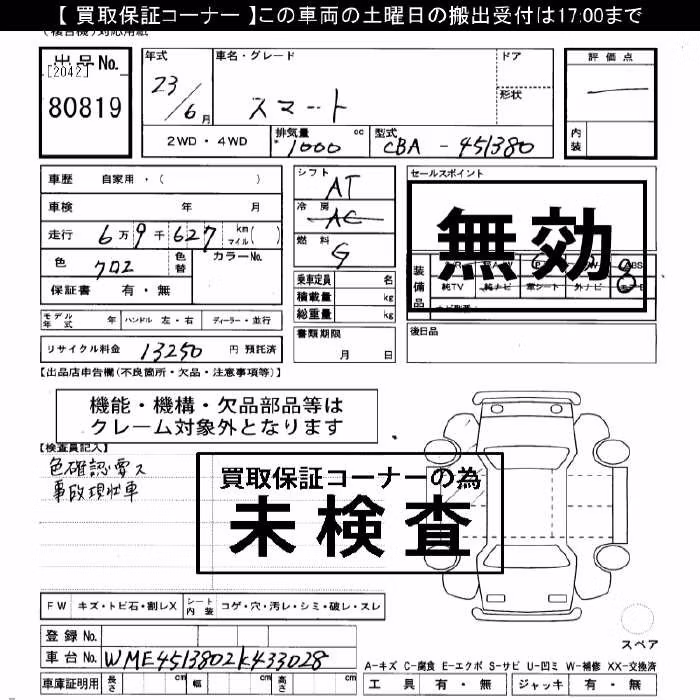 【 買取保証コーナー 】この車両の土曜日の搬出受付は17:00まで
出品No. [2042] 80819
年式 23/6月
車名・グレード スマート
ドア
形状
評価点 —
内装
2WD・4WD
排気量 1000 cc
型式 CBA - 451380
車歴 自家用・( )
車検 年 月
走行 6万9千627 km マイル( )
色 クロ2
色替
カラーNo.
保証書 有・無
シフト AT
冷房 AC
燃料 G
乗車定員 名
積載量 kg
総重量 kg
書類期限 月 日
セールスポイント
無効
装備品
純TV 純ナビ 革シート 外ナビ
後日品
モデル年式 年 ハンドル 左・右 ディーラー・並行
リサイクル料金 13250 円 預託済
【出品店申告欄(不良箇所・欠品・注意事項等)】
機能・機構・欠品部品等は
クレーム対象外となります
【検査員記入】
色確認要ス
事故現状車
買取保証コーナーの為
未検査
FW キズ・トビ石・割レX シート内装 コゲ・穴・汚レ・シミ・破レ・スレ
登録No.
車台No. WME4513802K433028
車庫証明用 長さ cm 幅 cm 高さ cm
スペア
A-キズ C-腐食 E-エクボ S-サビ U-凹ミ W-補修 XX-交換済
工具 有・無 ジャッキ 有・無